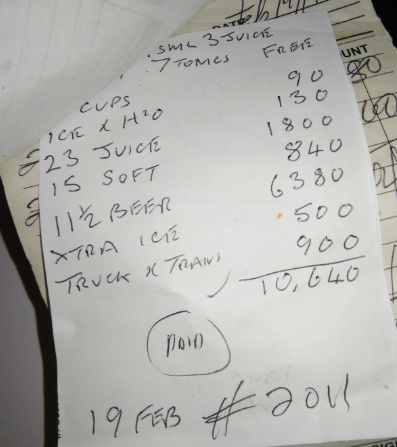 SML 3 JUICE
7 TONICS FREE
CUPS 90
ICE x H2O 130
23 JUICE 1800
15 SOFT 840
11½ BEER 6380
XTRA ICE 500
TRUCK x TRANS 900
10,640
PAID
19 FEB # 2011
UNT
80